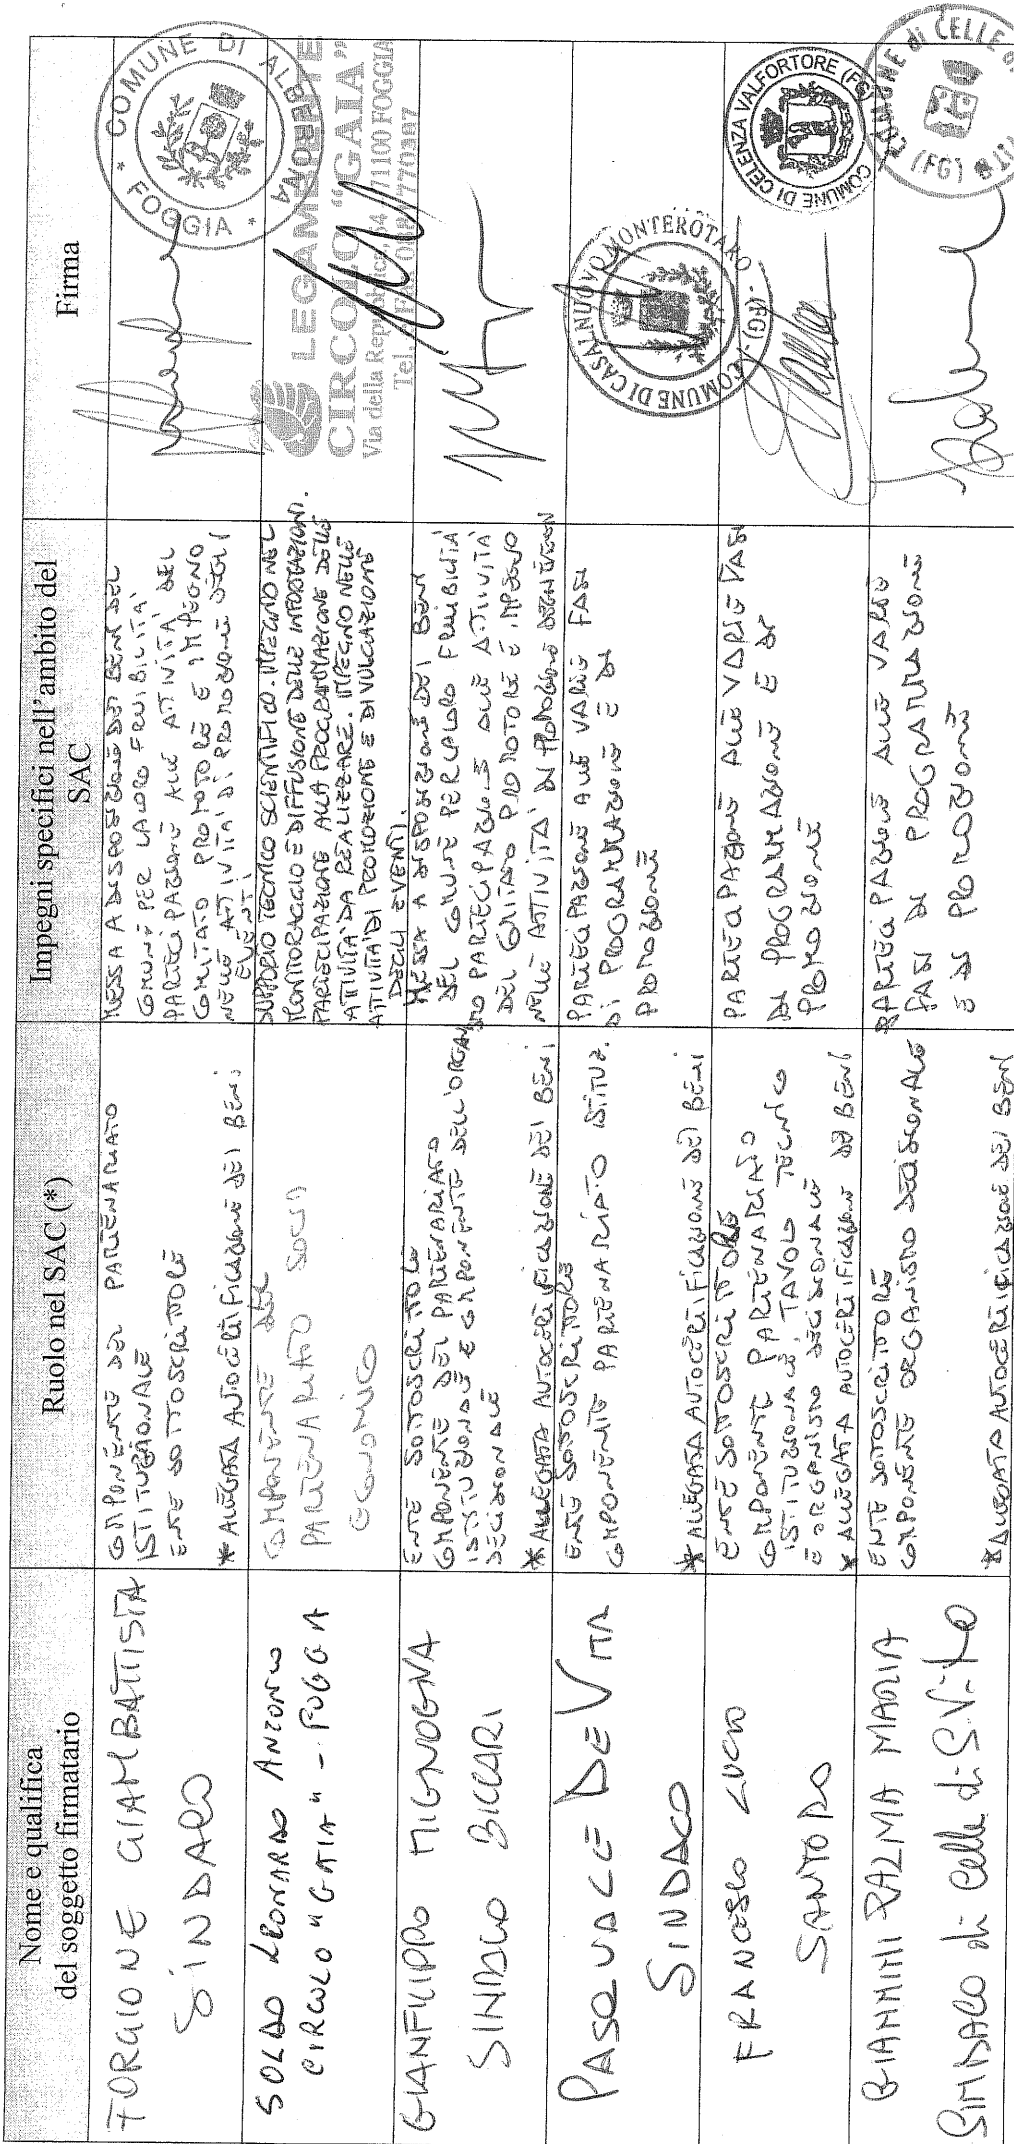 Nome e qualifica
del soggetto firmatario
Ruolo nel SAC (*)
Impegni specifici nell'ambito del
SAC
Firma
FORGIONE GIAMBATTISTA
SINDACO
COMPONENTE DEL PARTENARIATO
ISTITUZIONALE
ENTE SOTTOSCRITTORE
* ALLEGATA AUTOCERTIFICAZIONE DEI BENI
MESSA A DISPOSIZIONE DEI BENI DEL
COMUNE PER LA LORO FRUIBILITÀ
PARTECIPAZIONE ALLE ATTIVITÀ DEL
COMITATO PROMOTORE E IMPEGNO
NELLE ATTIVITÀ DI PROMOZIONE DEGLI
EVENTI
* COMUNE DI ALBERONA *
FOGGIA
SOLDO LEONARDO ANTONIO
CIRCOLO "GAIA" - FOGGIA
COMPONENTE DEL
PARTENARIATO SOCIO
ECONOMICO
SUPPORTO TECNICO SCIENTIFICO. IMPEGNO NEL
MONITORAGGIO E DIFFUSIONE DELLE INFORMAZIONI.
PARTECIPAZIONE ALLA PROGRAMMAZIONE DELLE
ATTIVITÀ DA REALIZZARE. IMPEGNO NELLE
ATTIVITÀ DI PROMOZIONE E DI VULGAZIONE
DEGLI EVENTI.
LEGAMBIENTE
CIRCOLO "GAIA"
Via della Repubblica, 54 71100 FOGGIA
Tel.
GIANFILIPPO MIGNOGNA
SINDACO BICCARI
ENTE SOTTOSCRITTORE
COMPONENTE DEL PARTENARIATO
ISTITUZIONALE E COMPONENTE DELL'ORGANISMO
DECISIONALE
* ALLEGATA AUTOCERTIFICAZIONE DEI BENI
MESSA A DISPOSIZIONE DEI BENI
DEL COMUNE PER LA LORO FRUIBILITÀ
PARTECIPAZIONE ALLE ATTIVITÀ
DEL COMITATO PROMOTORE E IMPEGNO
NELLE ATTIVITÀ DI PROMOZIONE DEGLI EVENTI
PASQUALE DE VITA
SINDACO
ENTE SOTTOSCRITTORE
COMPONENTE PARTENARIATO ISTITUZ.
* ALLEGATA AUTOCERTIFICAZIONE DEI BENI
PARTECIPAZIONE ALLE VARIE FASI
DI PROGRAMMAZIONE E DI
PROMOZIONE
COMUNE DI CASALNUOVO MONTEROTARO - (FG)
FRANCESCO LUCIO
SANTORO
ENTE SOTTOSCRITTORE
COMPONENTE PARTENARIATO
ISTITUZIONALE, TAVOLO TECNICO
E ORGANISMO DECISIONALE
* ALLEGATA AUTOCERTIFICAZIONE DEI BENI
PARTECIPAZIONE ALLE VARIE FASI
DI PROGRAMMAZIONE E DI
PROMOZIONE
COMUNE DI CELENZA VALFORTORE (FG)
GIANNINI PALMA MARIA
SINDACO di Celle di S. Vito
ENTE SOTTOSCRITTORE
COMPONENTE ORGANISMO DECISIONALE
* ALLEGATA AUTOCERTIFICAZIONE DEI BENI
PARTECIPAZIONE ALLE VARIE
FASI DI PROGRAMMAZIONE
E DI PROMOZIONE
COMUNE di CELLE
(FG)